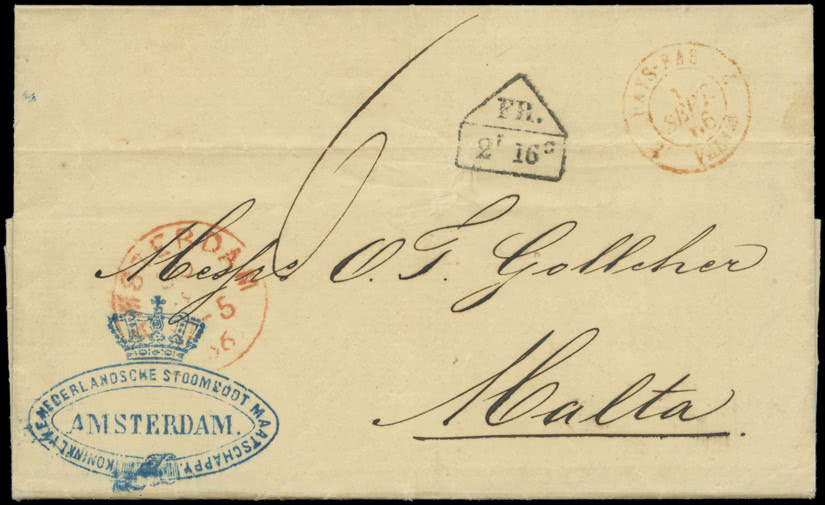 6
FR.
2f 16c
2 PAYS-BAS 2
1
SEPT.
66
VALEN
AMSTERDAM
5
66
Messrs O. F. Gollcher
Malta.
KONINKLYKE NEDERLANDSCHE STOOMBOOT MAATSCHAPPY.
AMSTERDAM.